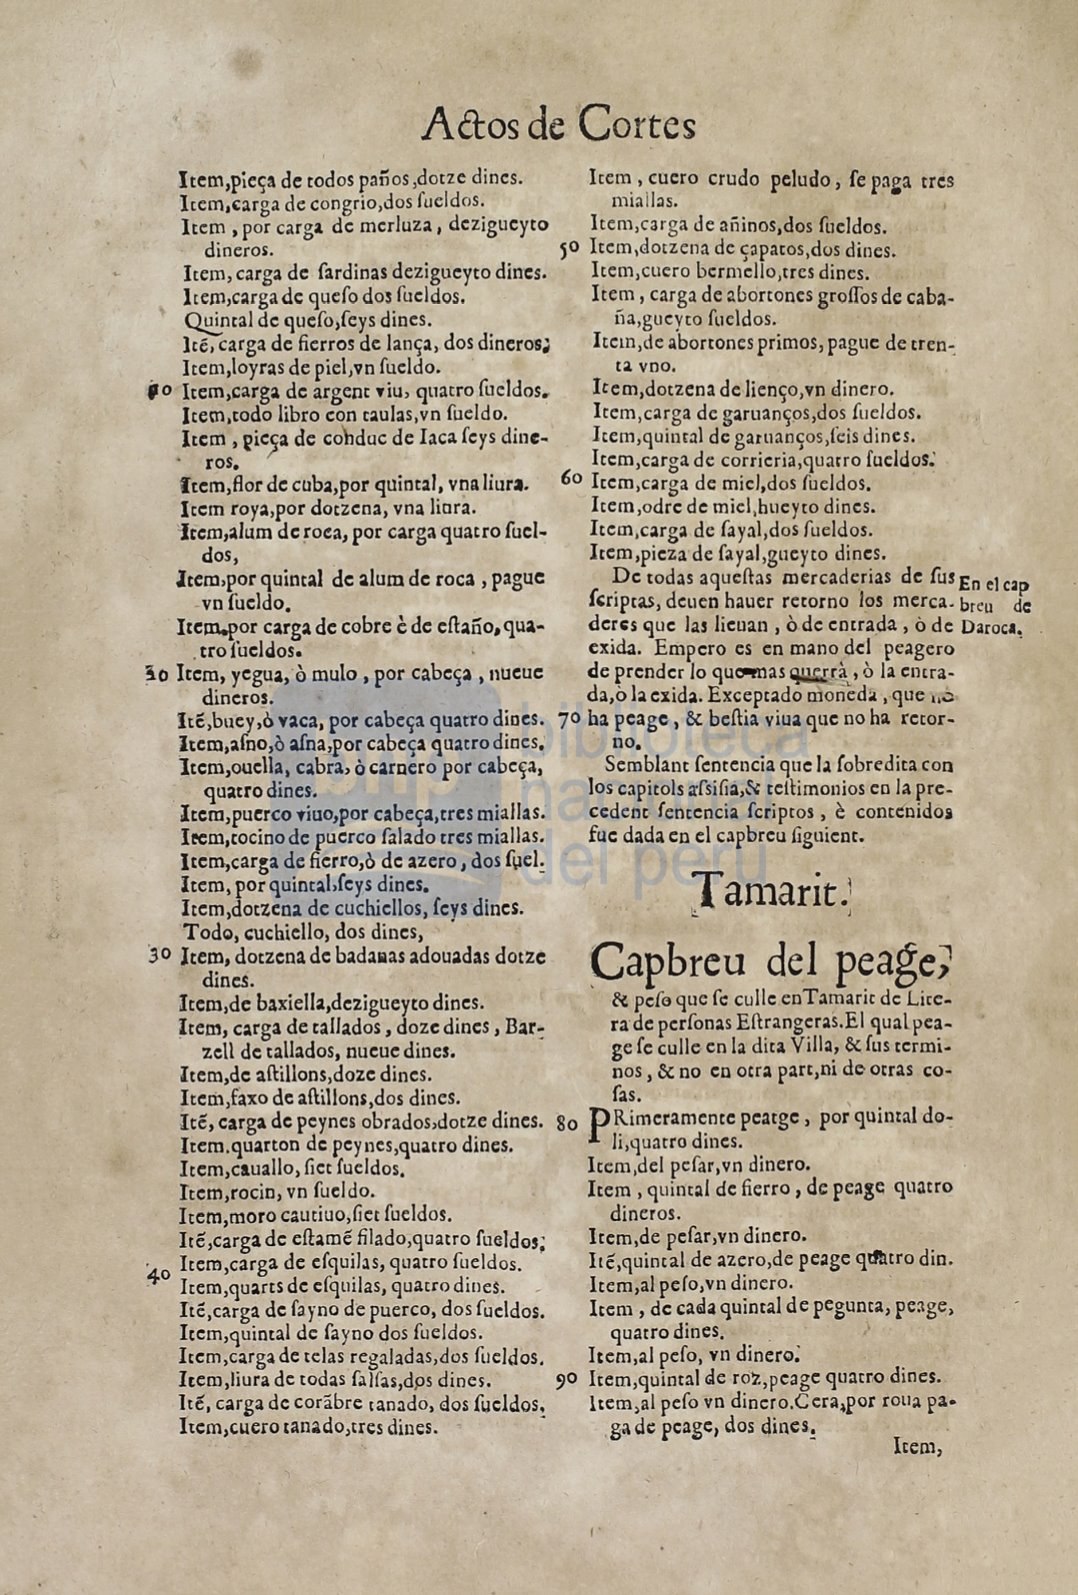 Actos de Cortes
Item,pieça de todos paños,dotze dines.
Item,carga de congrio,dos ſueldos.
Item , por carga de merluza , dezigueyto
dineros.
Item, carga de ſardinas dezigueyto dines.
Item,carga de queſo dos ſueldos.
Quintal de queſo,ſeys dines.
Itẽ, carga de fierros de lança, dos dineros;
Item,loyras de piel,vn ſueldo.
10 Item,carga de argent viu, quatro ſueldos.
Item,todo libro con taulas,vn ſueldo.
Item , pieça de conduc de Iaca ſeys dine-
ros.
Item,flor de cuba,por quintal, vna liura.
Item roya,por dotzena, vna liura.
Item,alum de roca, por carga quatro ſuel-
dos,
Item,por quintal de alum de roca , pague
vn ſueldo.
Item.por carga de cobre è de eſtaño,qua-
tro ſueldos.
20 Item, yegua, ò mulo , por cabeça , nueue
dineros.
Itẽ,buey,ò vaca, por cabeça quatro dines.
Item,aſno,ò aſna,por cabeça quatro dines.
Item,ouella, cabra, ò carnero por cabeça,
quatro dines.
Item,puerco viuo,por cabeça,tres miallas.
Item,tocino de puerco ſalado tres miallas.
Item,carga de fierro,ò de azero, dos ſuel.
Item, por quintal,ſeys dines.
Item,dotzena de cuchiellos, ſeys dines.
Todo, cuchiello, dos dines,
30 Item, dotzena de badanas adouadas dotze
dines.
Item,de baxiella,dezigueyto dines.
Item, carga de tallados , doze dines , Bar-
zell de tallados, nueue dines.
Item,de aſtillons,doze dines.
Item,faxo de aſtillons,dos dines.
Itẽ, carga de peynes obrados,dotze dines.
Item.quarton de peynes,quatro dines.
Item,cauallo, ſiet ſueldos.
Item,rocin, vn ſueldo.
Item,moro cautiuo,ſiet ſueldos.
Itẽ,carga de eſtamẽ filado,quatro ſueldos;
Item,carga de eſquilas, quatro ſueldos.
40 Item,quarts de eſquilas, quatro dines.
Itẽ,carga de ſayno de puerco, dos ſueldos.
Item,quintal de ſayno dos ſueldos.
Item,carga de telas regaladas,dos ſueldos.
Item,liura de todas ſalſas,dos dines.
Itẽ, carga de corãbre tanado, dos ſueldos.
Item,cuero tanado,tres dines.
Item , cuero crudo peludo , ſe paga tres
miallas.
Item,carga de añinos,dos ſueldos.
50 Item,dotzena de çapatos,dos dines.
Item,cuero bermello,tres dines.
Item , carga de abortones groſſos de caba-
ña,gueyto ſueldos.
Item,de abortones primos, pague de tren-
ta vno.
Item,dotzena de lienço,vn dinero.
Item,carga de garuanços,dos ſueldos.
Item,quintal de garuanços,ſeis dines.
Item,carga de corrieria,quatro ſueldos.
60 Item,carga de miel,dos ſueldos.
Item,odre de miel,hueyto dines.
Item,carga de ſayal,dos ſueldos.
Item,pieza de ſayal,gueyto dines.
De todas aqueſtas mercaderias de ſus
ſcriptas, deuen hauer retorno los merca-
deres que las lieuan , ò de entrada , ò de
exida. Empero es en mano del peagero
de prender lo que mas querrà , ò la entra-
da,ò la exida. Exceptado moneda , que no
70 ha peage , & beſtia viua que no ha retor-
no.
En el cap
breu de
Daroca.
Semblant ſentencia que la ſobredita con
los capitols aſsiſia,& teſtimonios en la pre-
cedent ſentencia ſcriptos , è contenidos
fue dada en el capbreu ſiguient.
Tamarit.
Capbreu del peage,
& peſo que ſe culle en Tamarit de Lite-
ra de perſonas Eſtrangeras.El qual pea-
ge ſe culle en la dita Villa, & ſus termi-
nos , & no en otra part,ni de otras co-
ſas.
80 PRimeramente peatge , por quintal do-
li,quatro dines.
Item,del peſar,vn dinero.
Item , quintal de fierro , de peage quatro
dineros.
Item,de peſar,vn dinero.
Itẽ,quintal de azero,de peage quatro din.
Item,al peſo,vn dinero.
Item , de cada quintal de pegunta, peage,
quatro dines.
Item,al peſo, vn dinero.
90 Item,quintal de roz,peage quatro dines.
Item,al peſo vn dinero.Cera,por roua pa-
ga de peage, dos dines.
Item,
biblioteca
nacional
del perú
bnp